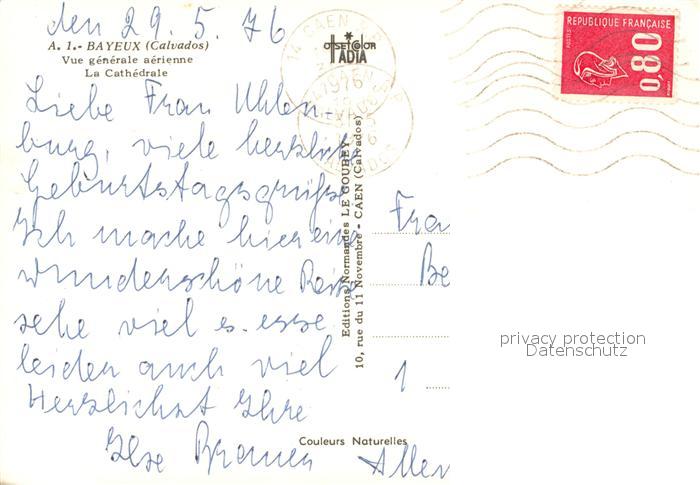 den 29. 5. 76
A. 1.- BAYEUX (Calvados)
Vue générale aérienne
La Cathédrale
Liebe Frau Uhlen-
burg, viele herzliche
Geburtstagsgrüße
Ich mache hier eine
wunderschöne Reise
sehe viel u. esse
leider auch viel
Herzlichst Ihre
Ilse
Couleurs Naturelles
OFFSET COLOR
IADIA
1976
Editions Normandes LE GOUBEY
10, rue du 11 Novembre - CAEN (Calvados)
REPUBLIQUE FRANÇAISE
POSTES
0,80
Frau
Be
1
Allem
privacy protection
Datenschutz